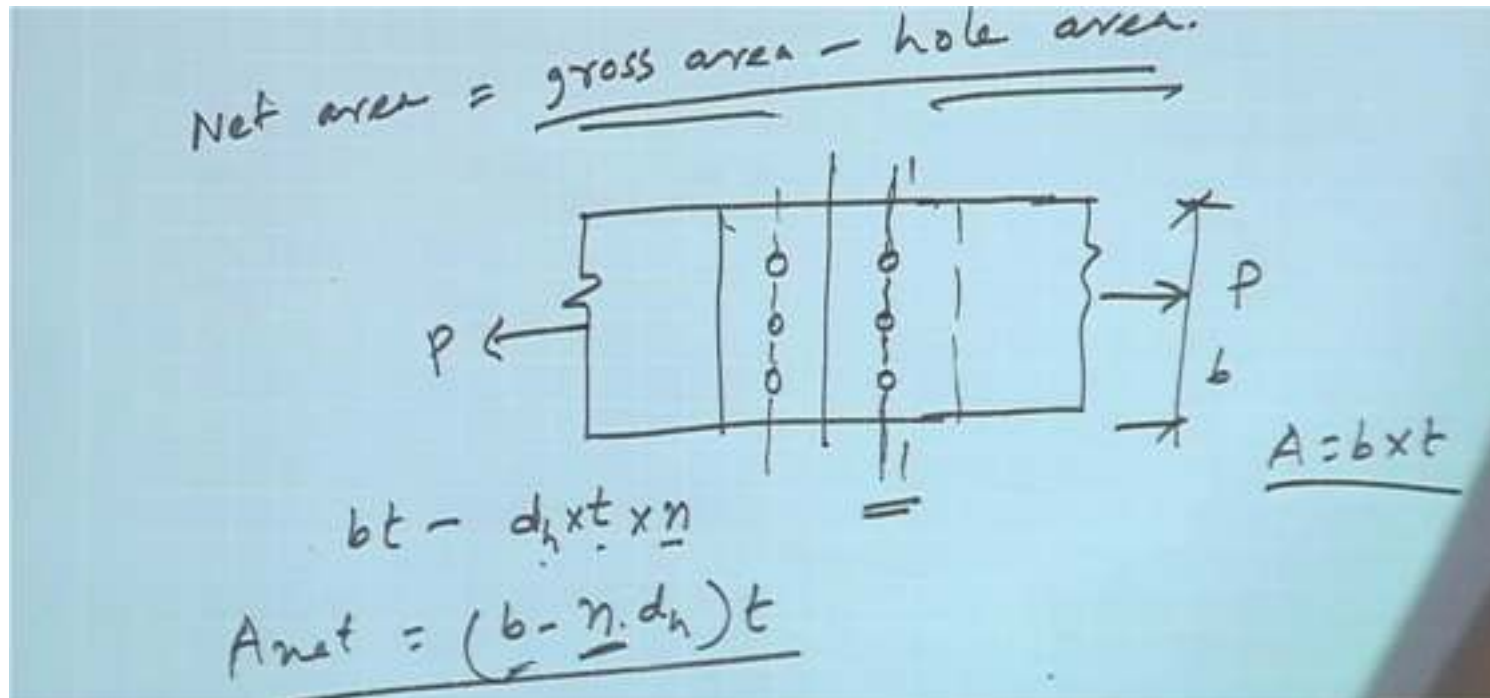 Net area = gross area - hole area.
1
P
P
b
1
A = b x t
bt - dh x t x n
Anet = (b - n. dh) t